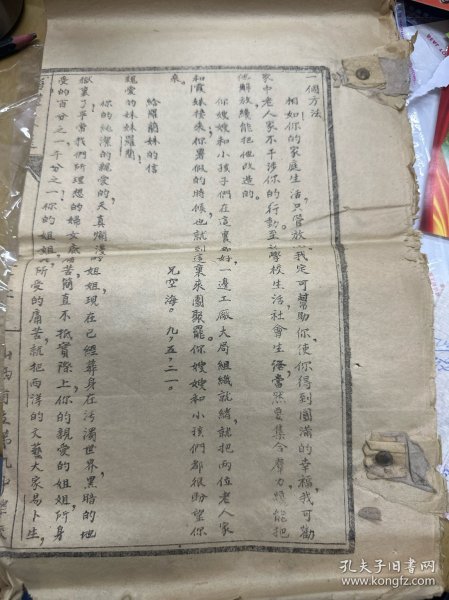 一個方法
相如你的家庭生活,只管放心我定可幫助你,使你得到圓滿的幸福我可勸
家中老人家不干涉你的行動至於學校生活社會生活當然要集合羣力纔能把
他解放纔能把他改造的。
你嫂嫂和小孩子們在這裏好,一邊工廠大局組織就緒,就把两位老人家
和霞妹接來你暑假的時候也就到這裏來團聚罷。你嫂嫂和小孩們都很盼望你
來。
兄空海。九,五,二一。
給羅蘭妹的信
親愛的妹妹羅蘭
你的純潔的親愛的天真爛漫的姐姐,現在已經葬身在污濁世界黑暗的地
獄裏了平常我們所理想的婦女底痛苦簡直不抵實際上,你的親愛的姐姐所身
受的百分之一,千分之一,你的姐姐所愛的痛苦,就把西洋的文藝大家易卜生,
山西省立第九中學校
孔夫子旧书网
www.kongfz.com